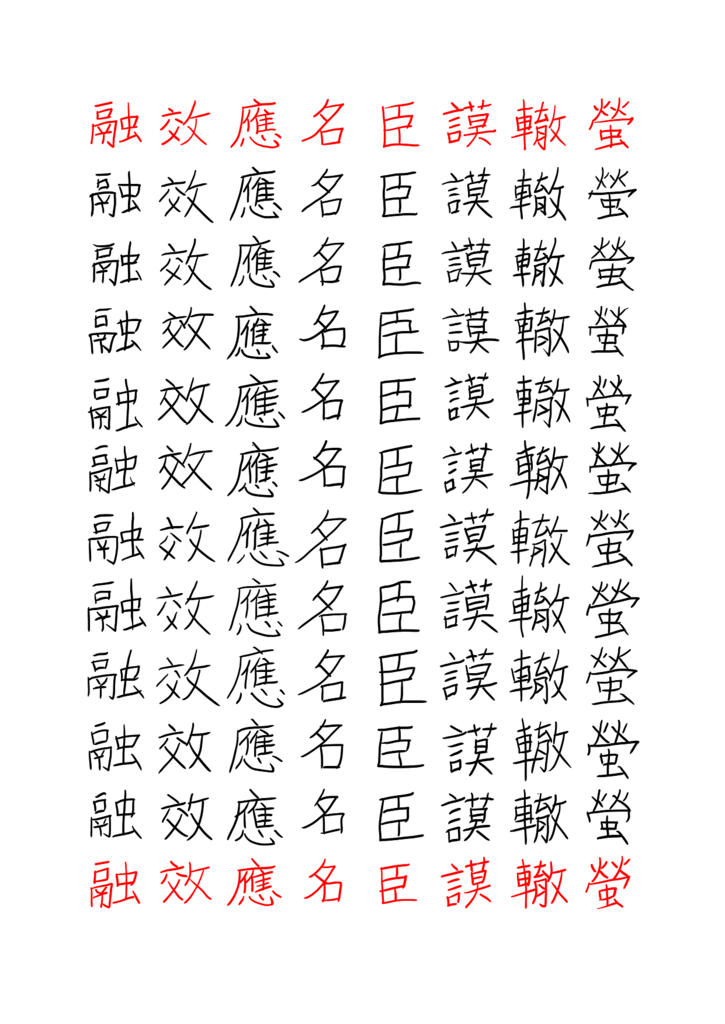 融效應名臣謨轍螢
融效應名臣謨轍螢
融效應名臣謨轍螢
融效應名臣謨轍螢
融效應名臣謨轍螢
融效應名臣謨轍螢
融效應名臣謨轍螢
融效應名臣謨轍螢
融效應名臣謨轍螢
融效應名臣謨轍螢
融效應名臣謨轍螢
融效應名臣謨轍螢